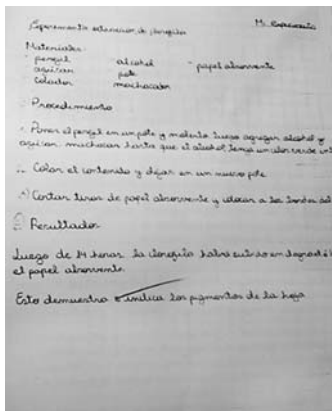 Experimento extracción de clorofila
Materiales:
perejil alcohol - papel absorvente
azúcar pote
colador machacador
Procedimiento
Poner el perejil en un pote y molerlo luego agregar alcohol y
azúcar. machacar hasta que el alcohol tenga un color verde
Colar el contenido y dejar en un nuevo pote
Cortar tiras de papel absorvente y colocar a los bordes del
Resultados
Luego de 24 horas la clorofila habrá subido en
el papel absorvente.
Esto demuestra e indica los pigmentos de la hoja